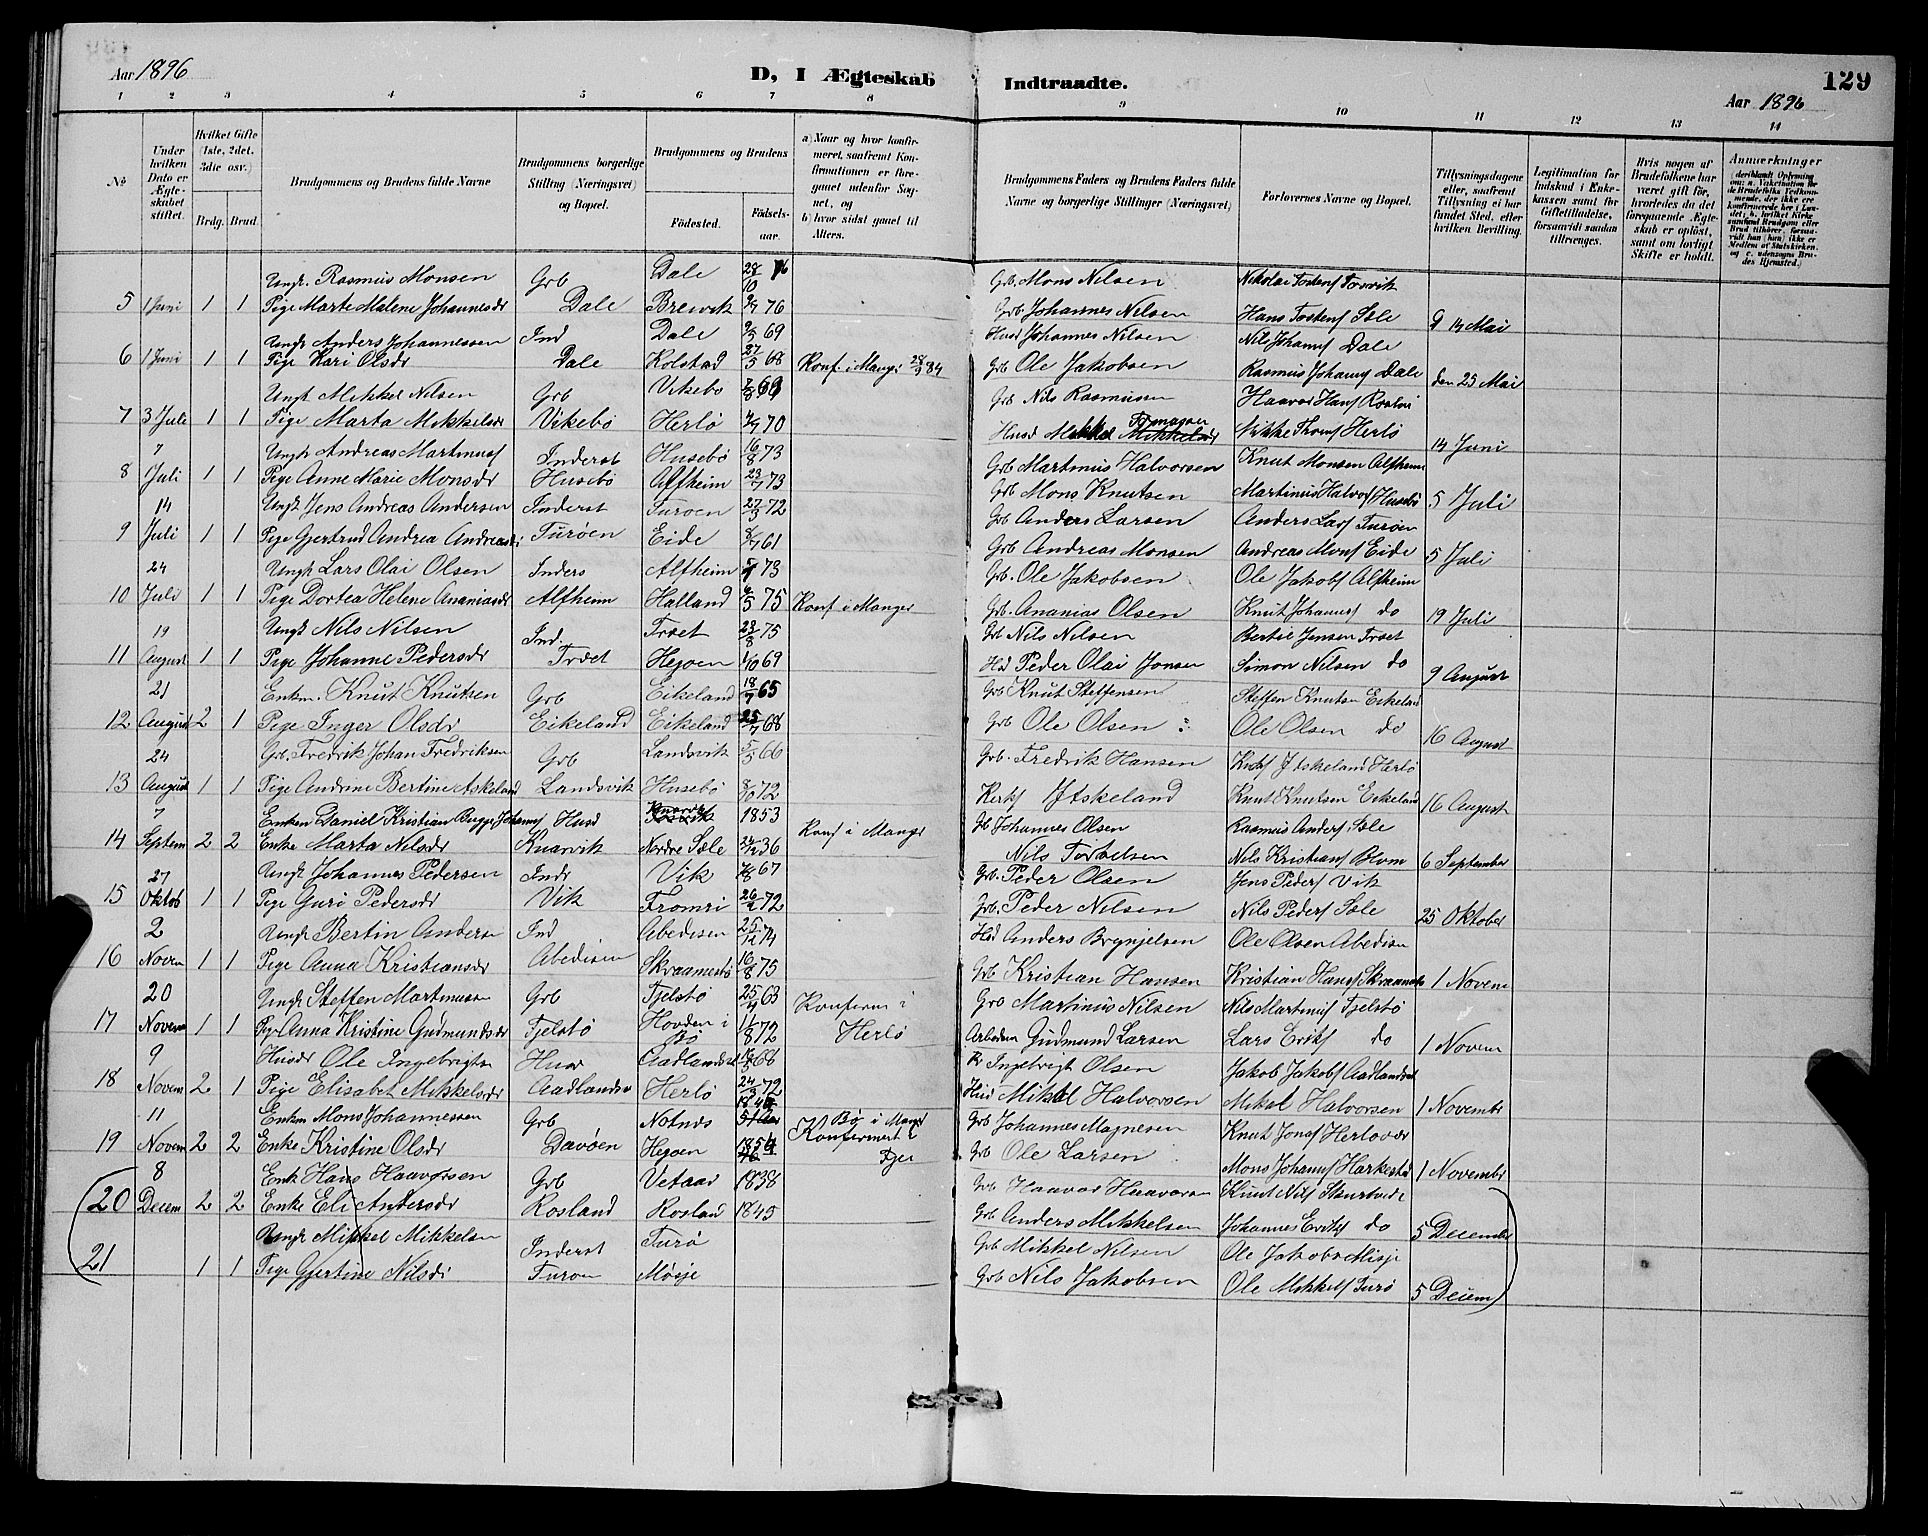 Aar 1896
D, I Ægteskab Indtraadte.
129
Aar 1896
1 2 3 4 5 6 7 8 9 10 11 12 13 14
No
Under hvilken Dato er Ægteskabet stiftet.
Hvilket Gifte (1ste, 2det, 3die osv.)
Brdg. Brud.
Brudgommens og Brudens fulde Navne
Brudgommens borgerlige Stilling (Næringsvei) og Bopæl.
Brudgommens og Brudens
Födested.
Födselsaar.
a) Naar og hvor konfirmeret, saafremt Konfirmationen er foregaaet udenfor Sognet, og
b) hvor sidst gaaet til Alters.
Brudgommens Faders og Brudens Faders fulde Navne og borgerlige Stillinger (Næringsvei)
Forlovernes Navne og Bopæl.
Tillysningsdagene eller, saafremt Tillysning ei har fundet Sted, efter hvilken Bevilling.
Legitimation for Indskud i Enkekassen samt for Giftetilladelse, forsaavidt saadan tiltrænges.
Hvis nogen af Brudefolkene har været gift før, hvorledes da det foregaaende Ægteskab er opløst, samt om lovligt Skifte er holdt.
Anmærkninger
Ungk. Rasmus Monsen Grb Dale 28/10 76 Grb Mons Nilsen
5 1 Juni 1 1 Pige Marte Malene Johannesdr Dale Brevik 76 Grb Johannes Nilsen Hans Tostens Sæle 14 Mai
Ungk Anders Johannessen Ind Dale 69 Husd Johannes Nilsen Nils Johans Dale
6 1 Juni 1 1 Pige Kari Olsdr Dale Kolstad 27/5 68 Konf. i Manger 84 Grb Ole Jakobsen Rasmus Johans Dale den 25 Mai
Ungk Mikkel Nilsen Grb Vikebø 69 Grb Nils Rasmussen Haavar Hans
7 3 Juli 1 1 Pige Marta Mikkelsdr Vikebø Herlö 70 Husd Mikkel Herlö 14 Juni
7 Ungk Andreas Martinus Inderst Husebö 16/8 73 Grb Martinus Halvorsen Knut Monsen Alfheim
8 Juli 1 1 Pige Anne Marie Monsdr Husebö Alfheim 23/7 73 Grb Mons Knutsen Martinus Halvors Husebö 5 Juli
14 Ungk Jens Andreas Andersen Inderst Turöen 27/3 72 Grb Anders Larsen Anders Lars Turöen
9 Juli 1 1 Pige Gjertrud Andrea Andreasdr Turöen Eide 61 Grb Andreas Monsen Andreas Mons Eide 5 Juli
24 Ungk Lars Olai Olsen Inders Alfheim 73 Grb. Ole Jakobsen Ole Jakobs Alfheim
10 Juli 1 1 Pige Dortea Helene Ananiasdr Alfheim Halland 75 Konf i Manger Grb. Ananias Olsen Knut Johans do 19 Juli
19 Ungk Nils Nilsen Ind. Træt 28/8 75 Grb Nils Nilsen Bertil Jensen Træt
11 August 1 1 Pige Johanne Pedersdr Træt Hegoen 69 Hd Peder Olai Jonsen Simon Nilsen do 9 August
21 Enkm. Knut Knutsen Grb Eikeland 18/7 65 Grb Knut Steffensen Steffen Knutsen Eikeland
12 August 2 1 Pige Inger Olsdr Eikeland Eikeland 25/7 68 Grb Ole Olsen Ole Olsen do 16 August
24 Grb. Fredrik Johan Fredriksen Grb Landsvik 66 Grb. Fredrik Hansen
13 August 1 1 Pige Andrine Bertine Askeland Landsvik Husebö 8/10 72 Askeland Knut Knutsen Eikeland 16 August
7 Enkem Daniel Kristian Bugge Johans Husd 1853 Konf i Manger Johannes Olsen Rasmus Anders Sæle
14 Septem 2 2 Enke Marta Nilsdr Knarvik Nordre Sæle 36 Nils Nils Kristians Blom 6 September
27 Ungk Johannes Pedersen Indr Vik 67 Grb. Peder Olsen Jens Peders Vik
15 Oktob 1 1 Pige Guri Pedersdr Vik Fromri 72 Grb. Peder Nilsen Nils Peders Sæle 25 Oktober
2 Ungk Bertin Anderse Ind Abedisen 25/12 74 Hsd Anders Brynjelsen Ole Olsen Abedisen
16 Novem 1 1 Pige Anna Kristiansdr Abedisen Skraamestö 16/8 75 Grb Kristian Hansen Kristian Hans Skraamestö 1 Novem
20 Ungk Steffen Martinussen Grb Tjelstö 25/4 63 Konferm i Grb Martinus Nilsen Nils Martinus Tjelstö
17 Novem 1 1 Pige Anna Kristine Gudmundsdr Tjelstö Hovden i Bö 11/8 72 Herlö Arbeider Gudmund Larsen Lars Eriks do 1 Novem
9 Husdr Ole Ingebrigts Husr Aadlandsvik 68 Ingebrigt Olsen Jakob Jakobs Aadlandsvik
18 Novem 2 1 Pige Elisabet Mikkelsdr Aadlandsv Herlö 72 Husd Mikal Halvorsen Mikal Halvorsen 1 November
11 Enkem Mons Johannessen Grb Notnes Bö i Manger Grb Johannes Magnesen Knut Jonas Herlövær
19 Novem 2 2 Enke Kristine Olsdr Davöen Hegoen 1854 Konfermert i Grb Ole Larsen Mons Johans Harkestad 1 November
8 Enk Hans Haavorsen Grb Vetaas 1838 Grb Haavar Haavorsen Knut Nils
20 Decem 2 2 Enke Eli Andersdr Rosland Rosland 1845 Grb Anders Mikkelsen Johannes Eriks do 5 December
Ungk Mikkel Mikkelsen Inderst Turö Grb Mikkel Nilsen Ole Jakobs Misje
21 1 1 Pige Gjertine Nilsdr Turöen Möije Grb Nils Jakobsen Ole Mikkels Turö 5 Decem